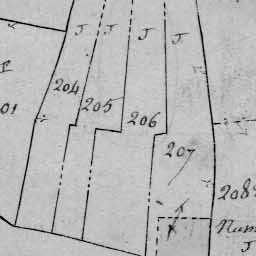 J J J J
204
205
206
207
01
208
Num
J